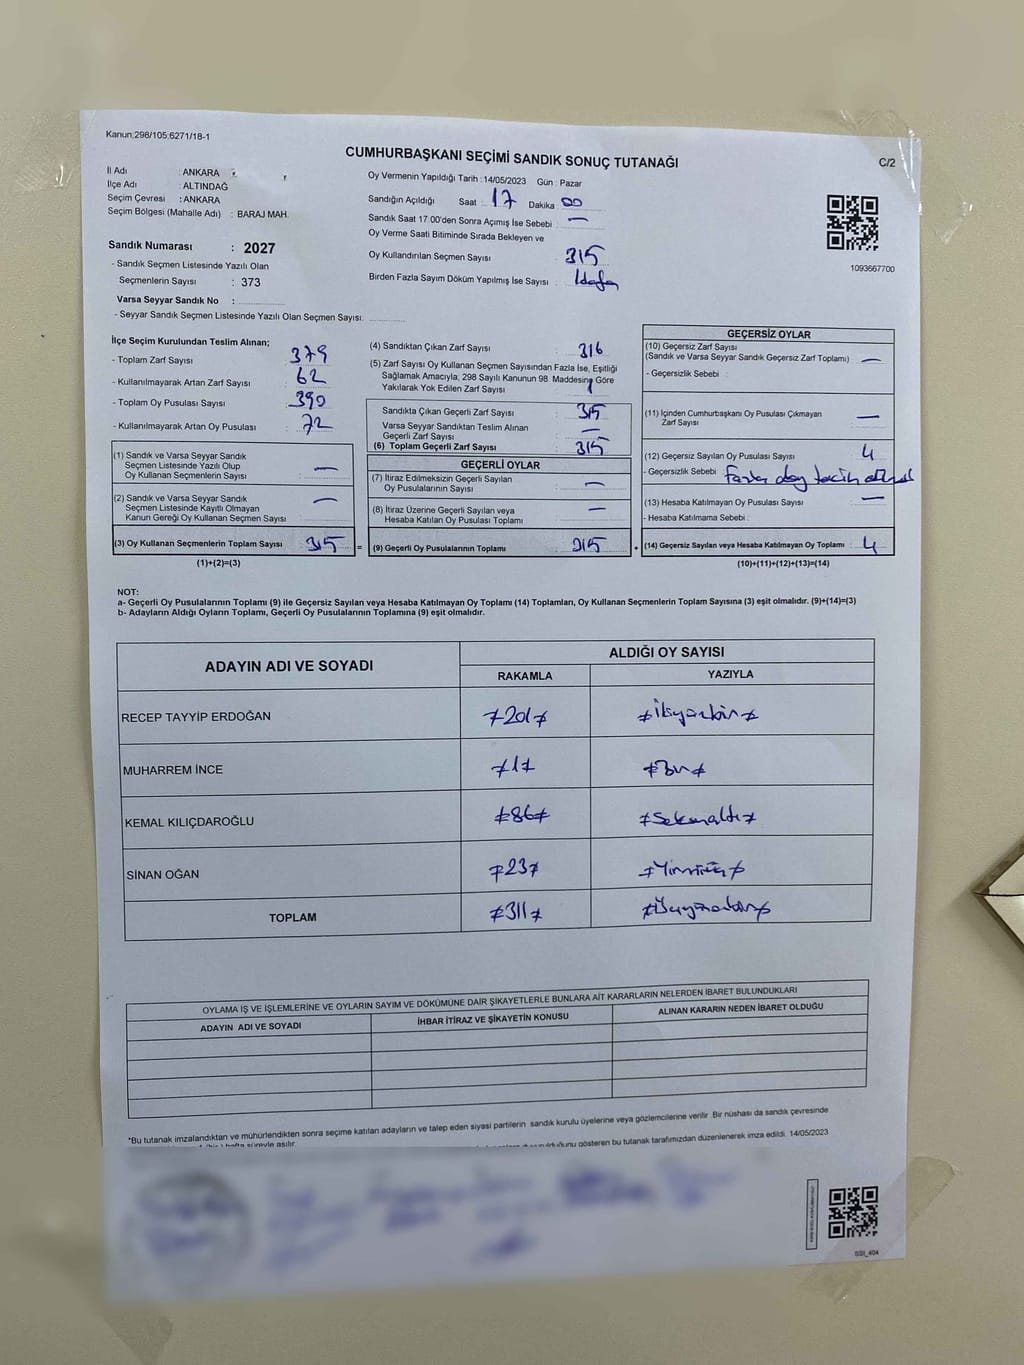 Kanun;298/105;6271/18-1
CUMHURBAŞKANI SEÇİMİ SANDIK SONUÇ TUTANAĞI
C/2
İl Adı : ANKARA
İlçe Adı : ALTINDAĞ
Seçim Çevresi : ANKARA
Seçim Bölgesi (Mahalle Adı) : BARAJ MAH.
Oy Vermenin Yapıldığı Tarih : 14/05/2023 Gün : Pazar
Sandığın Açıldığı Saat : 17 Dakika 00
Sandık Saat 17:00'den Sonra Açımış İse Sebebi : —
Oy Verme Saati Bitiminde Sırada Bekleyen ve
Oy Kullandırılan Seçmen Sayısı : 315
Birden Fazla Sayım Döküm Yapılmış İse Sayısı : 1 defa
1093667700
Sandık Numarası : 2027
- Sandık Seçmen Listesinde Yazılı Olan
Seçmenlerin Sayısı : 373
Varsa Seyyar Sandık No :
- Seyyar Sandık Seçmen Listesinde Yazılı Olan Seçmen Sayısı:
İlçe Seçim Kurulundan Teslim Alınan;
- Toplam Zarf Sayısı : 379
- Kullanılmayarak Artan Zarf Sayısı : 62
- Toplam Oy Pusulası Sayısı : 390
- Kullanılmayarak Artan Oy Pusulası : 72
(1) Sandık ve Varsa Seyyar Sandık
Seçmen Listesinde Yazılı Olup
Oy Kullanan Seçmenlerin Sayısı : —
(2) Sandık ve Varsa Seyyar Sandık
Seçmen Listesinde Kayıtlı Olmayan
Kanun Gereği Oy Kullanan Seçmen Sayısı : —
(3) Oy Kullanan Seçmenlerin Toplam Sayısı : 315 =
(1)+(2)=(3)
(4) Sandıktan Çıkan Zarf Sayısı : 316
(5) Zarf Sayısı Oy Kullanan Seçmen Sayısından Fazla İse, Eşitliği
Sağlamak Amacıyla; 298 Sayılı Kanunun 98. Maddesine Göre
Yakılarak Yok Edilen Zarf Sayısı : 1
Sandıkta Çıkan Geçerli Zarf Sayısı : 315
Varsa Seyyar Sandıktan Teslim Alınan
Geçerli Zarf Sayısı : —
(6) Toplam Geçerli Zarf Sayısı : 315
GEÇERLİ OYLAR
(7) İtiraz Edilmeksizin Geçerli Sayılan
Oy Pusulalarının Sayısı : —
(8) İtiraz Üzerine Geçerli Sayılan veya
Hesaba Katılan Oy Pusulası Toplamı : —
(9) Geçerli Oy Pusulalarının Toplamı : 315 +
GEÇERSİZ OYLAR
(10) Geçersiz Zarf Sayısı
(Sandık ve Varsa Seyyar Sandık Geçersiz Zarf Toplamı) : —
- Geçersizlik Sebebi :
(11) İçinden Cumhurbaşkanı Oy Pusulası Çıkmayan
Zarf Sayısı : —
(12) Geçersiz Sayılan Oy Pusulası Sayısı : 4
- Geçersizlik Sebebi : Fazla
(13) Hesaba Katılmayan Oy Pusulası Sayısı : —
- Hesaba Katılmama Sebebi :
(14) Geçersiz Sayılan veya Hesaba Katılmayan Oy Toplamı : 4
(10)+(11)+(12)+(13)=(14)
NOT:
a- Geçerli Oy Pusulalarının Toplamı (9) ile Geçersiz Sayılan veya Hesaba Katılmayan Oy Toplamı (14) Toplamları, Oy Kullanan Seçmenlerin Toplam Sayısına (3) eşit olmalıdır. (9)+(14)=(3)
b- Adayların Aldığı Oyların Toplamı, Geçerli Oy Pusulalarının Toplamına (9) eşit olmalıdır.
ADAYIN ADI VE SOYADI ALDIĞI OY SAYISI
RAKAMLA YAZIYLA
RECEP TAYYİP ERDOĞAN ≠201≠ ≠İkiyüzbir≠
MUHARREM İNCE ≠1≠ ≠Bir≠
KEMAL KILIÇDAROĞLU ≠86≠ ≠Seksenaltı≠
SİNAN OĞAN ≠23≠ ≠Yirmiüç≠
TOPLAM ≠311≠ ≠Üçyüzonbir≠
OYLAMA İŞ VE İŞLEMLERİNE VE OYLARIN SAYIM VE DÖKÜMÜNE DAİR ŞİKAYETLERLE BUNLARA AİT KARARLARIN NELERDEN İBARET BULUNDUKLARI
ADAYIN ADI VE SOYADI İHBAR İTİRAZ VE ŞİKAYETİN KONUSU ALINAN KARARIN NEDEN İBARET OLDUĞU
*Bu tutanak imzalandıktan ve mühürlendikten sonra seçime katılan adayların ve talep eden siyasi partilerin sandık kurulu üyelerine veya gözlemcilerine verilir. Bir nüshası da sandık çevresinde
hafta süreyle asılır.
olduğunu gösteren bu tutanak tarafımızdan düzenlenerek imza edildi. 14/05/2023
SSI_404